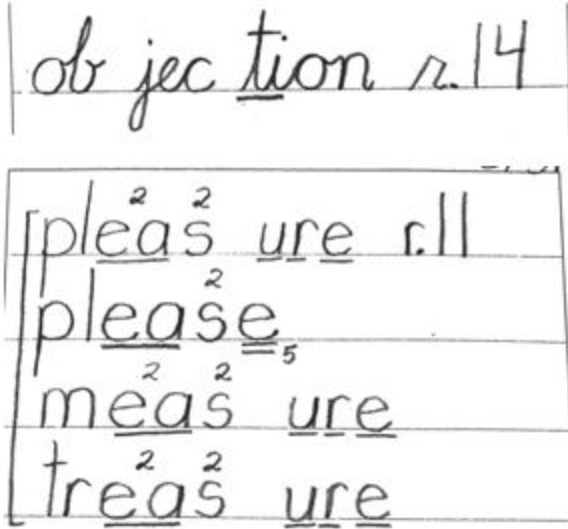 ob jec tion r.14
pleas ure r.11
please
meas ure
treas ure